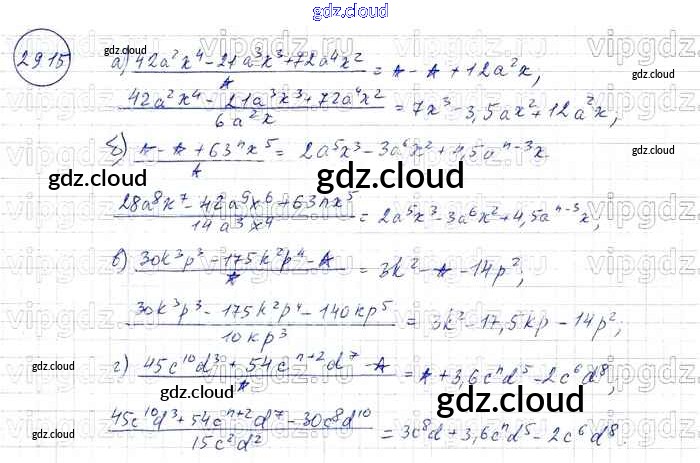 gdz.cloud
2915
а) (42a²x⁴ - 21a³x³ + 72a⁴x²) / A = A - A + 12a²x,
(42a²x⁴ - 21a³x³ + 72a⁴x²) / 6a²x = 7x³ - 3,5ax² + 12a²x,
б) (A - A + 63ⁿx⁵) / A = 2a⁵x³ - 3a⁶x² + 4,5aⁿ⁻³x
gdz.cloud gdz.cloud gdz.cloud
(28a⁸x⁷ - 42a⁹x⁶ + 63ⁿx⁵) / 14a³x⁴ = 2a⁵x³ - 3a⁶x² + 4,5aⁿ⁻³x,
в) (30k³p³ - 175k²p⁴ - A) / A = 3k² - A - 14p²,
(30k³p³ - 175k²p⁴ - 140kp⁵) / 10kp³ = 3k² - 17,5kp - 14p²;
г) (45c¹⁰d³ + 54cⁿ⁺²d⁷ - A) / A = A + 3,6cⁿd⁵ - 2c⁶d⁸,
gdz.cloud gdz.cloud
gdz.cloud
(45c¹⁰d³ + 54cⁿ⁺²d⁷ - 30c⁸d¹⁰) / 15c²d² = 3c⁸d + 3,6cⁿd⁵ - 2c⁶d⁸.
gdz.cloud